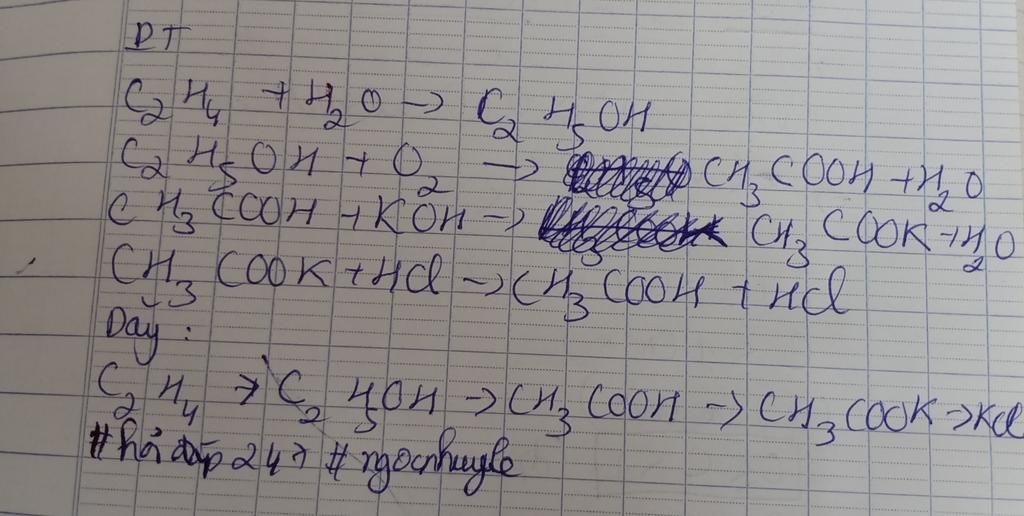 PT
C₂H₄ + H₂O → C₂H₅OH
C₂H₅OH + O₂ → CH₃COOH + H₂O
CH₃COOH + KOH → CH₃COOK + H₂O
CH₃COOK + HCl → CH₃COOH + HCl
Dãy :
C₂H₄ → C₂H₅OH → CH₃COOH → CH₃COOK → KCl
#hỏi đáp 247 #ngocphuyle